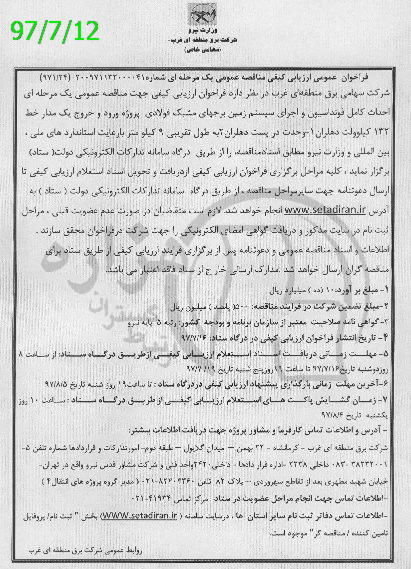 97/7/12
وزارت نیرو
شرکت برق منطقه ای غرب
(سهامی خاص)
فراخوان عمومی ارزیابی کیفی مناقصه عمومی یک مرحله ای شماره ۲۰۰۹۷۱۱۳۲۰۰۰۰۴۱ (۹۷۱/۲۴)
شرکت سهامی برق منطقه‌ای غرب در نظر دارد فراخوان ارزیابی کیفی جهت مناقصه عمومی یک مرحله ای
احداث کامل فونداسیون و اجرای سیستم زمین برجهای مشبک فولادی پروژه ورود و خروج یک مدار خط
۱۳۲ کیلوولت دهلران۱-وحدت در پست دهلران۲به طول تقریبی ۹ کیلو متر بارعایت استاندارد های ملی ،
بین المللی و وزارت نیرو مطابق اسنادمناقصه، را از طریق درگاه سامانه تدارکات الکترونیکی دولت( ستاد)
برگزار نماید ، کلیه مراحل برگزاری فراخوان ارزیابی کیفی ازدریافت و تحویل اسناد استعلام ارزیابی کیفی تا
ارسال دعوتنامه جهت سایرمراحل مناقصه ، از طریق درگاه سامانه تدارکات الکترونیکی دولت ( ستاد ) به
آدرس www.setadiran.ir انجام خواهد شد. لازم است متقاضیان در صورت عدم عضویت قبلی ، مراحل
ثبت نام در سایت مذکور و دریافت گواهی امضای الکترونیکی را جهت شرکت درفراخوان محقق سازند .
اطلاعات و اسناد مناقصه عمومی و دعوتنامه پس از برگزاری فرایند ارزیابی کیفی از طریق ستاد برای
مناقصه گران ارسال خواهد شد .مدارک ارسالی خارج از ستاد فاقد اعتبار می باشد.
۱- مبلغ برآورد:۱۰ (ده ) میلیارد ریال
۲-مبلغ تضمین شرکت در فرآیند مناقصه: ۵۰۰( پانصد ) میلیون ریال
۳-گواهی نامه صلاحیت معتبر از سازمان برنامه و بودجه کشور: رتبه ۵ پایه نیرو
۴- تاریخ انتشار فراخوان ارزیابی کیفی در درگاه ستاد: ۹۷/۷/۱۶
۵- مهلت زمانی دریافت اسناد استعلام ارزیابی کیفی ازطریق درگاه ستاد: از ساعت ۸
روزدوشنبه تاریخ ۹۷/۷/۱۶ تا ساعت ۱۹روزپنج شنبه تاریخ ۹۷/۷/۱۹
۶-آخرین مهلت زمانی بارگذاری پیشنهاد ارزیابی کیفی دردرگاه ستاد : تا ساعت۱۹ روز شنبه تاریخ ۹۷/۸/۵
۷- زمان گشایش پاکت های استعلام ارزیابی کیفی از طریق درگاه ستاد : ساعت ۱۰ روز
یکشنبه تاریخ ۹۷/۸/۶
- آدرس و اطلاعات تماس کارفرما و مشاور پروژه جهت دریافت اطلاعات بیشتر:
شرکت برق منطقه ای غرب - کرمانشاه - ۲۲ بهمن – میدان گلایول – طبقه دوم- امورتدارکات و قراردادها شماره تلفن ۵-
۰۸۳-۳۸۲۳۲۰۰۱ داخلی ۲۲۳۸ -اداره قرار دادها ، داخلی۲۴۲۰ واحد فنی و شرکت مشاور قدس نیرو واقع در تهران-
خیابان شهید مطهری بعد از تقاطع سهروردی – بلاک ۸۲ تلفن ( مدیر گروه پروژه های انتقال۴ )
-اطلاعات تماس جهت انجام مراحل عضویت در ستاد مرکز تماس ۴۱۹۳۴-۰۲۱
-اطلاعات تماس دفاتر ثبت نام سایر استان ها ، درسایت سامانه ( www.setadiran.ir) بخش " ثبت نام/ پروفایل
تامین کننده / مناقصه گر" موجود است.
روابط عمومی شرکت برق منطقه ای غرب